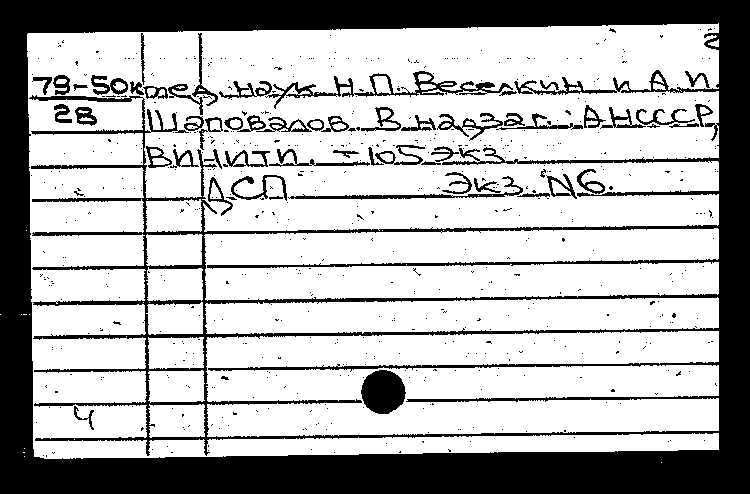 2
79-50к мед. наук Н.П. Веселкин и А.И.
28 Шаповалов. В надзаг.: АН СССР,
ВИНИТИ. - 105 экз.
ДСП Экз. N6.
Ч